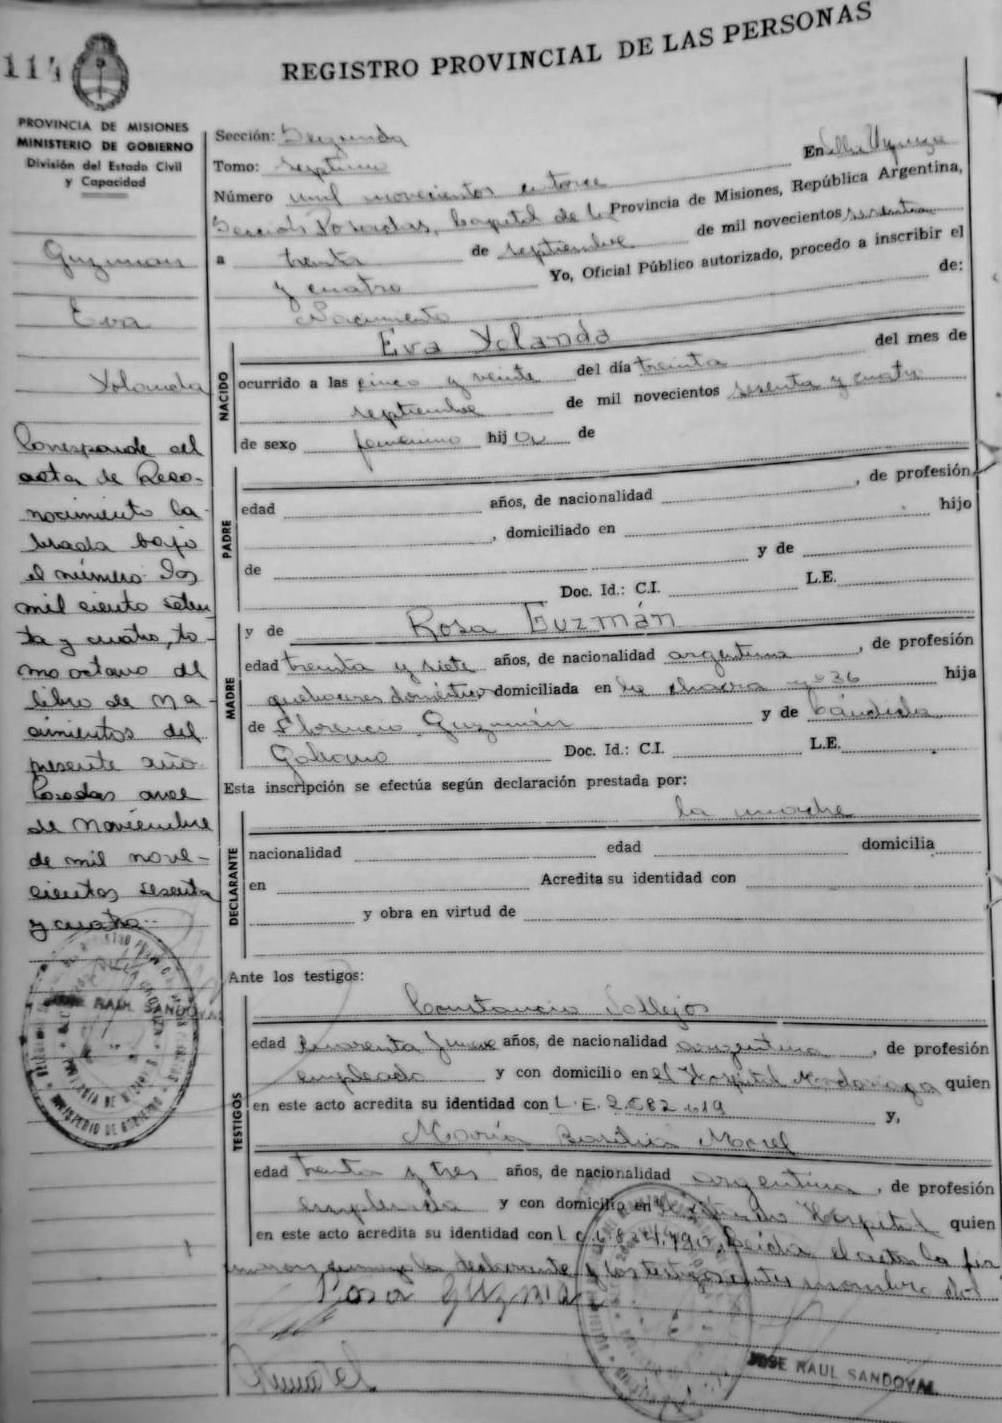 114
REGISTRO PROVINCIAL DE LAS PERSONAS
PROVINCIA DE MISIONES
MINISTERIO DE GOBIERNO
División del Estado Civil
y Capacidad
Guzman
Eva
Yolanda
Corresponde al
acta de Reco-
nocimiento la-
brada bajo
el número dos
mil ciento seten
ta y cuatro, to-
mo octavo del
libro de na-
cimientos del
presente año
Posadas once
de Noviembre
de mil nove-
cientos sesenta
y cuatro.-
RAUL SANDOVAL
Sección: Segunda
Tomo: septimo
En Villa Urquiza
Número mil novecientos catorce
Sección Posadas, Capital de la Provincia de Misiones, República Argentina,
a treinta de septiembre de mil novecientos sesenta
y cuatro Yo, Oficial Público autorizado, procedo a inscribir el
Nacimiento de:
NACIDO
Eva Yolanda
ocurrido a las cinco y veinte del día treinta del mes de
septiembre de mil novecientos sesenta y cuatro
de sexo femenino hija de
PADRE
, de profesión
edad años, de nacionalidad
, domiciliado en hijo
de y de
Doc. Id.: C.I. L.E.
MADRE
y de Rosa Guzmán
edad treinta y siete años, de nacionalidad argentina, de profesión
quehaceres domésticos domiciliada en la chacra nº 36 hija
de Florencio Guzmán y de Cándida
Doc. Id.: C.I. L.E.
Esta inscripción se efectúa según declaración prestada por:
DECLARANTE
la madre
nacionalidad edad domicilia
en Acredita su identidad con
y obra en virtud de
Ante los testigos:
TESTIGOS
Constancio Vallejos
edad cuarenta y nueve años, de nacionalidad argentina, de profesión
empleado y con domicilio en el Hospital Madariaga quien
en este acto acredita su identidad con L.E. y,
María Basilia Morel
edad treinta y tres años, de nacionalidad argentina, de profesión
empleada y con domicilio en Hospital quien
en este acto acredita su identidad con L.C. Leída el acta la fir
man la declarante y los testigos
Rosa Guzman
JOSE RAUL SANDOVAL